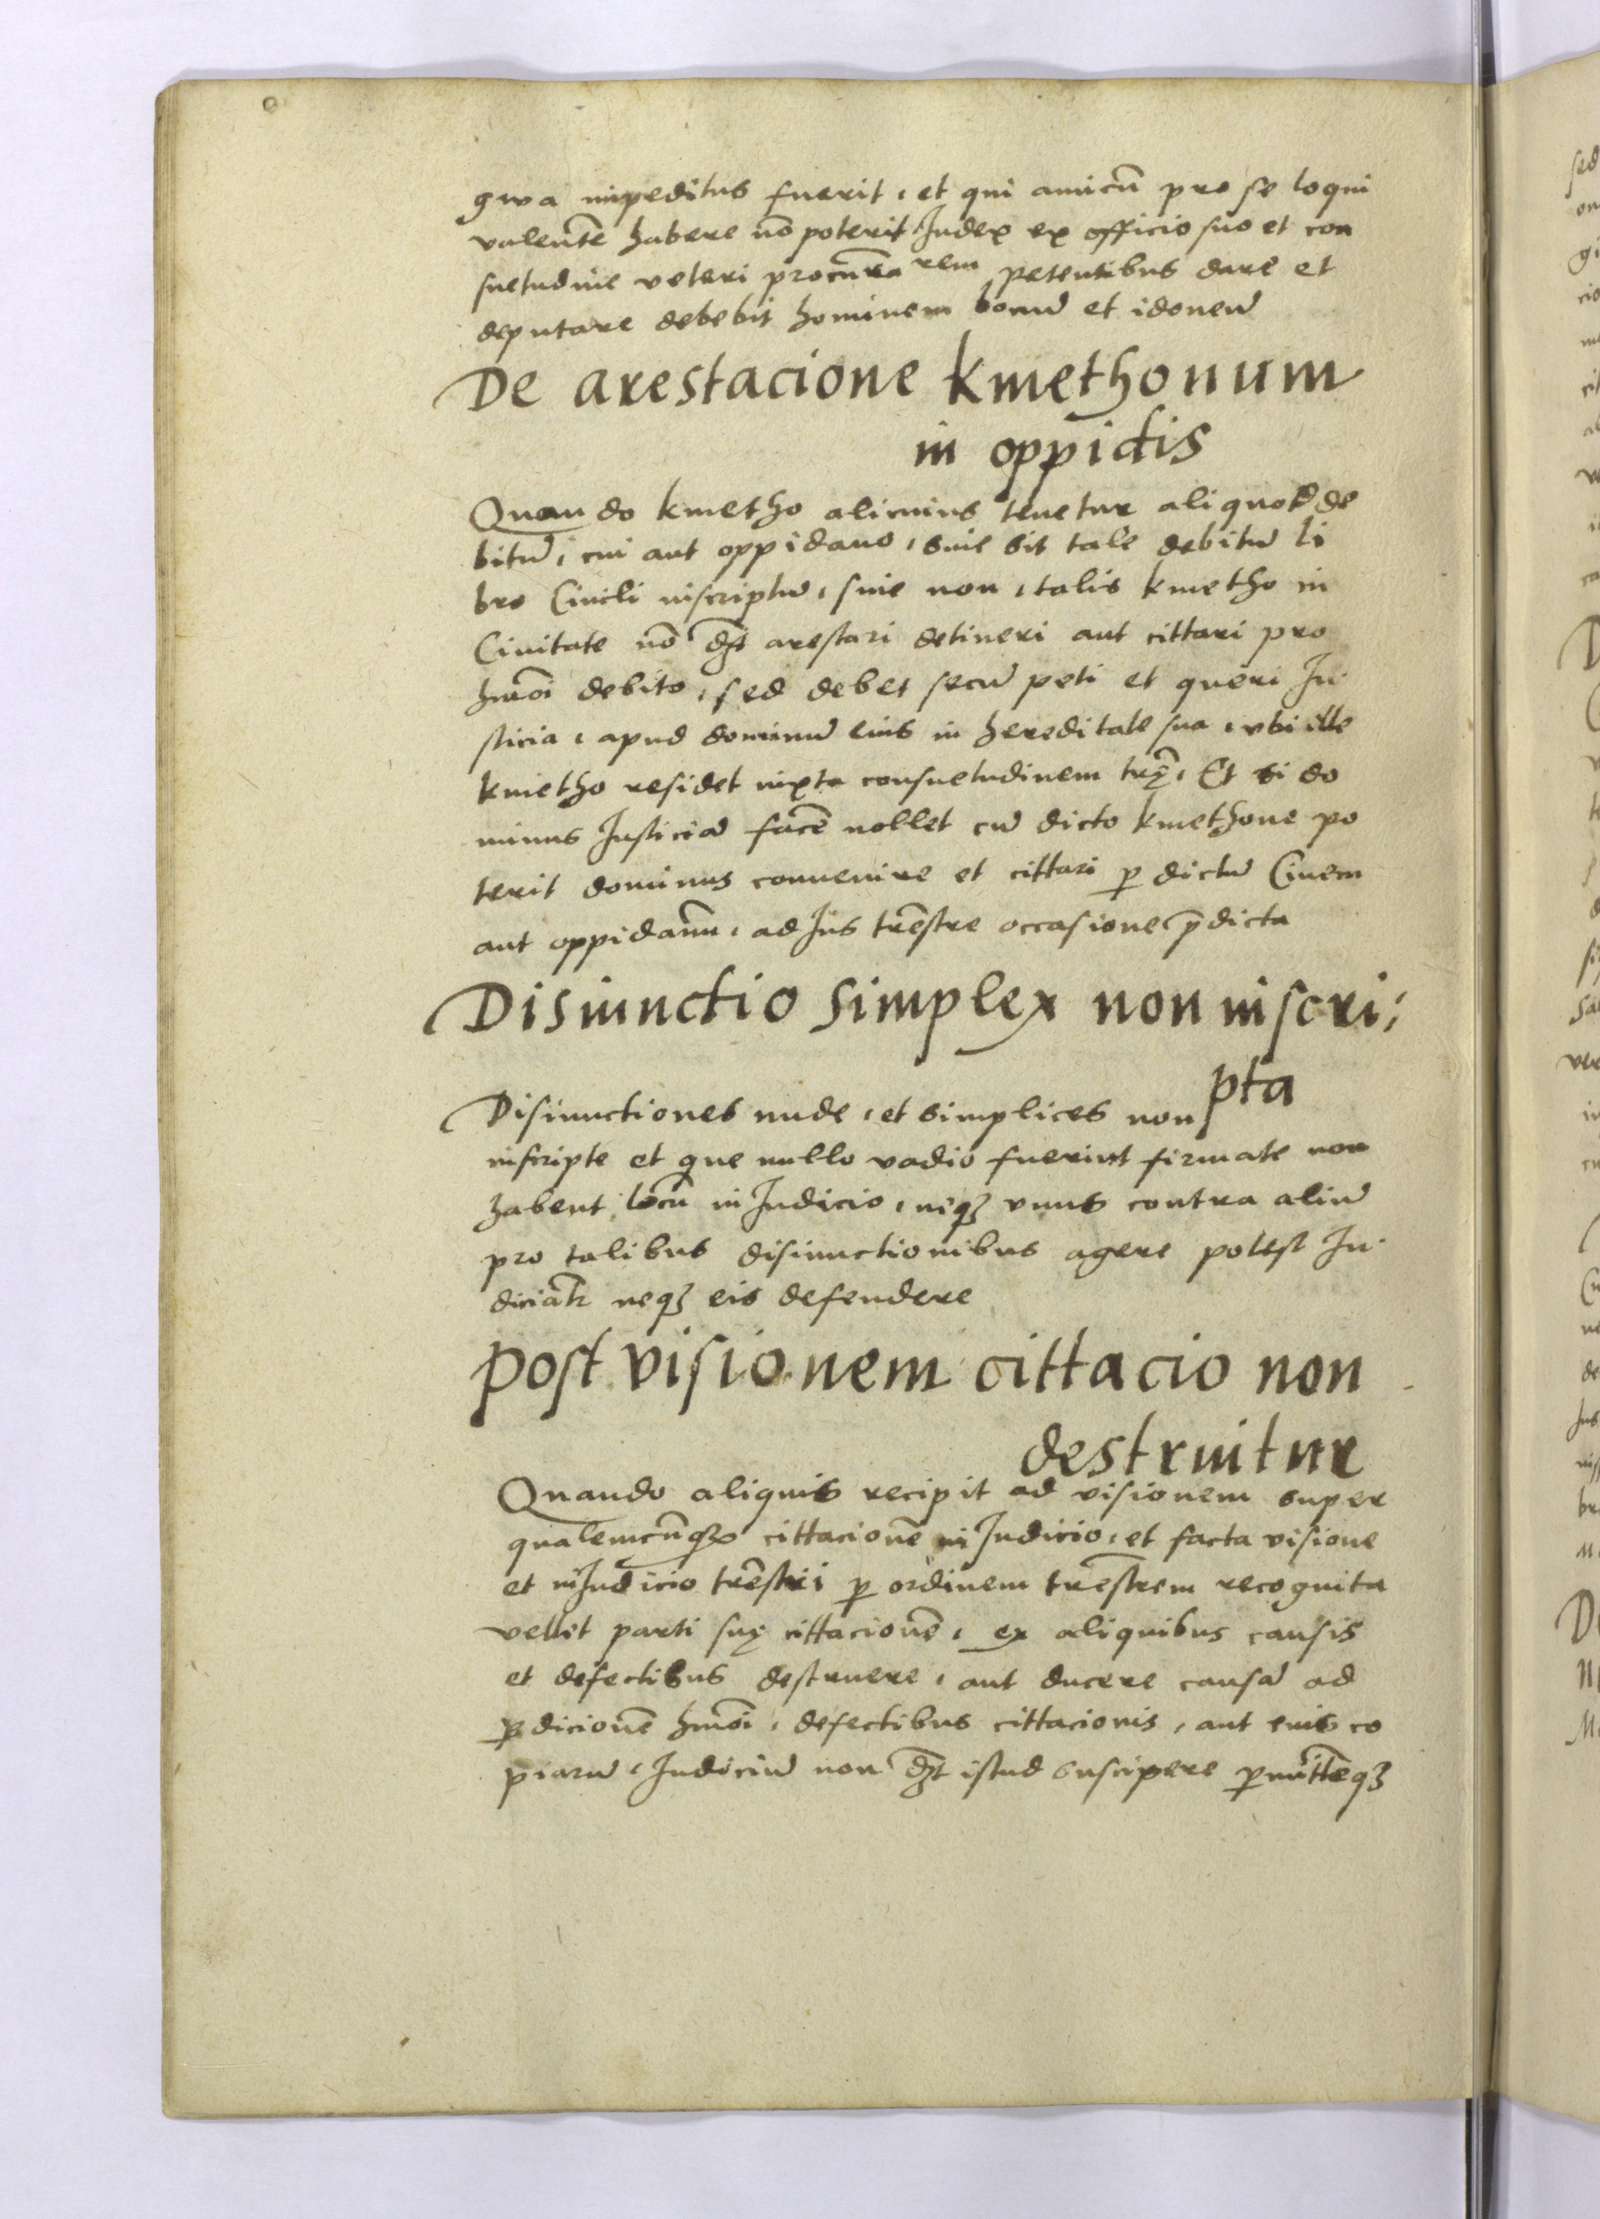 gwa impeditus fuerit, et qui amicū pro se loqui
valentē habere nō poterit Iudex ex officio suo et con
suetudine veteri procura rem petentibus dare et
deputare debebit hominem bonū et idoneū
De arestacione kmethonum
in oppidis
Quando kmetho alicuius tenetur aliquod de
bitū, cui aut oppidano, siue sit tale debitū li
bro Ciuili inscriptū, siue non, talis kmetho in
Ciuitate nō dꝫt arestari detineri aut cittari pro
hmōi debito, sed debet secū peti et queri Iu
sticia, apud dominū eius in hereditate sua, vbi ille
kmetho residet iuxta consuetudinem Et si do
minus Iusticiā facē nollet cū dicto kmethone po
terit dominus conuenire et cittari ꝑ dictū Ciuem
aut oppidanū, ad Ius trēstre occasione p̄dicta
Disiunctio simplex non inscri:
pta
Disiunctiones nude, et simplices non
inscripte et que nullo vadio fuerint firmate non
habent locū in Iudicio, neqꝫ vnus contra aliū
pro talibus disiunctionibus agere potest Iu
diciatr neqꝫ eis defendere
Post visionem cittacio non
destruitur
Quando aliquis recipit ad visionem super
qualemcūqꝫ cittacionē in Iudicio, et facta visione
et in Iudicio trēstri ꝑ ordinem trēstrem recognita
vellet parti suę cittacionē, ex aliquibus causis
et defectibus destruere, aut ducere causā ad
ꝑdicionē hmōi, defectibus cittacionis, aut eius co
piarū, Iudiciū non dꝫt istud suscipere ꝑmitteqꝫ